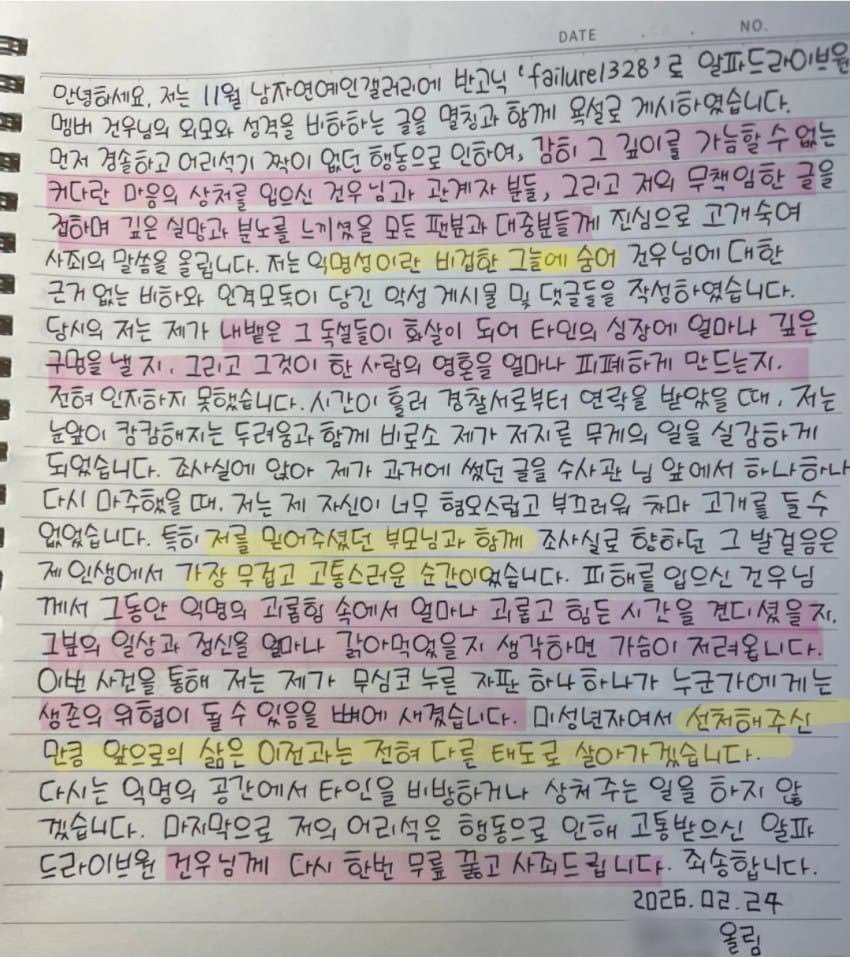 DATE . . NO.
안녕하세요, 저는 11월 남자연예인갤러리에 반고닉 ‘failure1328’로 알파드라이브원
멤버 건우님의 외모와 성격을 비하하는 글을 멸칭과 함께 욕설로 게시하였습니다.
먼저 경솔하고 어리석기 짝이 없던 행동으로 인하여, 감히 그 깊이를 가늠할 수 없는
커다란 마음의 상처를 입으신 건우님과 관계자 분들, 그리고 저의 무책임한 글을
접하며 깊은 실망과 분노를 느끼셨을 모든 팬분과 대중분들께 진심으로 고개숙여
사죄의 말씀을 올립니다. 저는 익명성이란 비겁한 그늘에 숨어 건우님에 대한
근거 없는 비하와 인격모독이 담긴 악성 게시물 및 댓글들을 작성하였습니다.
당시의 저는 제가 내뱉은 그 독설들이 화살이 되어 타인의 심장에 얼마나 깊은
구멍을 낼 지, 그리고 그것이 한 사람의 영혼을 얼마나 피폐하게 만드는지.
전혀 인지하지 못했습니다. 시간이 흘러 경찰서로부터 연락을 받았을 때, 저는
눈앞이 캄캄해지는 두려움과 함께 비로소 제가 저지른 무게의 일을 실감하게
되었습니다. 조사실에 앉아 제가 과거에 썼던 글을 수사관 님 앞에서 하나하나
다시 마주했을 때, 저는 제 자신이 너무 혐오스럽고 부끄러워 차마 고개를 들 수
없었습니다. 특히 저를 믿어주셨던 부모님과 함께 조사실로 향하던 그 발걸음은
제 인생에서 가장 무겁고 고통스러운 순간이었습니다. 피해를 입으신 건우님
께서 그동안 익명의 괴롭힘 속에서 얼마나 괴롭고 힘든 시간을 견디셨을지,
그분의 일상과 정신을 얼마나 갉아먹었을지 생각하면 가슴이 저려옵니다.
이번 사건을 통해 저는 제가 무심코 누른 자판 하나하나가 누군가에게는
생존의 위협이 될 수 있음을 뼈에 새겼습니다. 미성년자여서 선처해주신
만큼 앞으로의 삶은 이전과는 전혀 다른 태도로 살아가겠습니다.
다시는 익명의 공간에서 타인을 비방하거나 상처 주는 일을 하지 않
겠습니다. 마지막으로 저의 어리석은 행동으로 인해 고통받으신 알파
드라이브원 건우님께 다시 한번 무릎 꿇고 사죄드립니다. 죄송합니다.
2026.02.24
올림